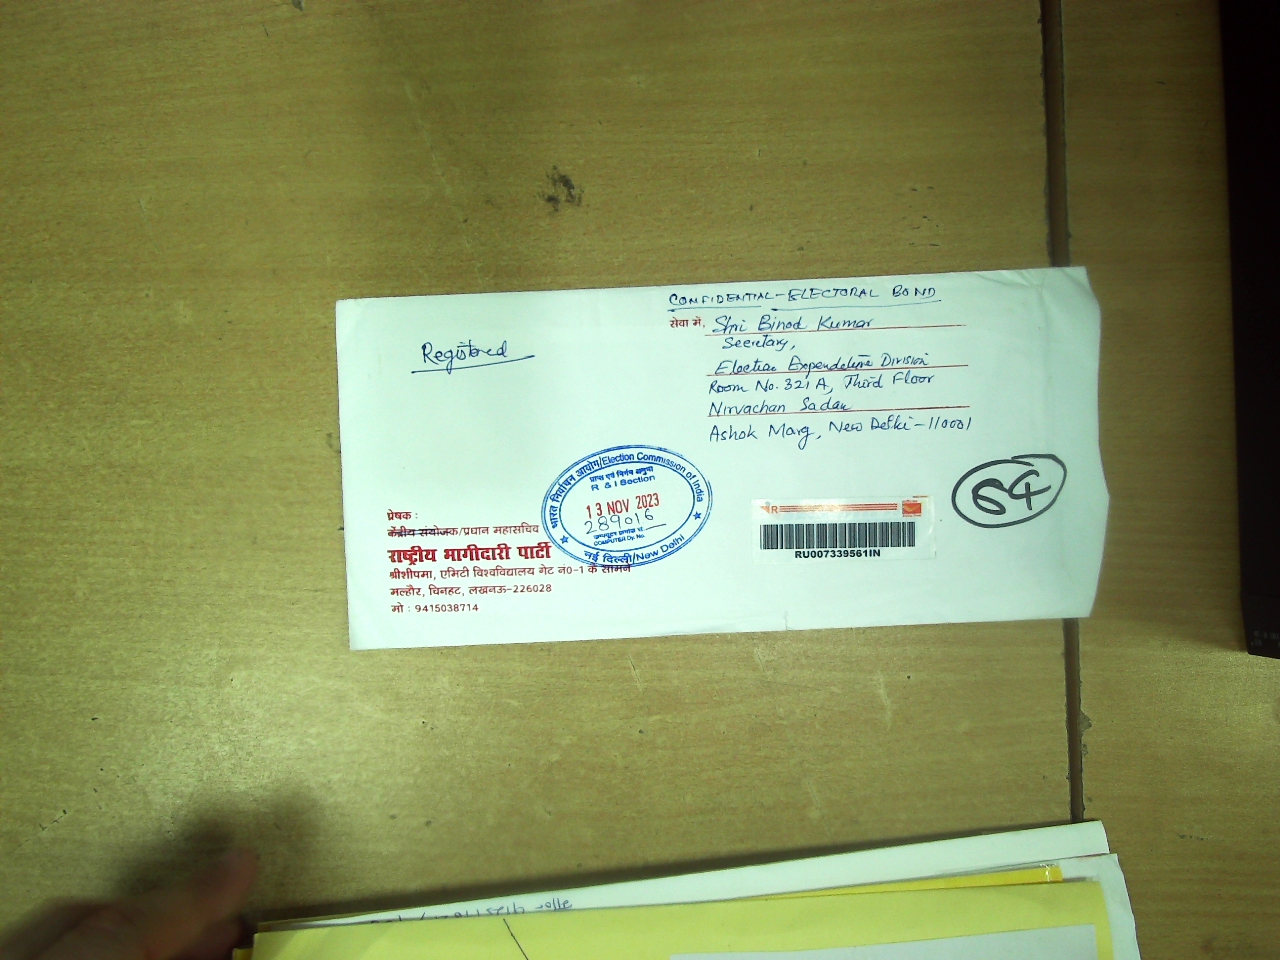 CONFIDENTIAL - ELECTORAL BOND
सेवा में, Shri Binod Kumar
Secretary,
Election Expenditure Division
Room No. 321 A, Third Floor
Nirvachan Sadan
Ashok Marg, New Delhi - 110001
Registered
भारत निर्वाचन आयोग/Election Commission of India
R & I Section
13 NOV 2023
289016
COMPUTER Dy. No.
नई दिल्ली/New Delhi
64
R
RU007339561IN
प्रेषक :
केंद्रीय संयोजक/प्रधान महासचिव
राष्ट्रीय भागीदारी पार्टी
श्रीशीपमा, एमिटी विश्वविद्यालय गेट नं0-1 के सामने
मल्हौर, चिनहट, लखनऊ-226028
मो : 9415038714